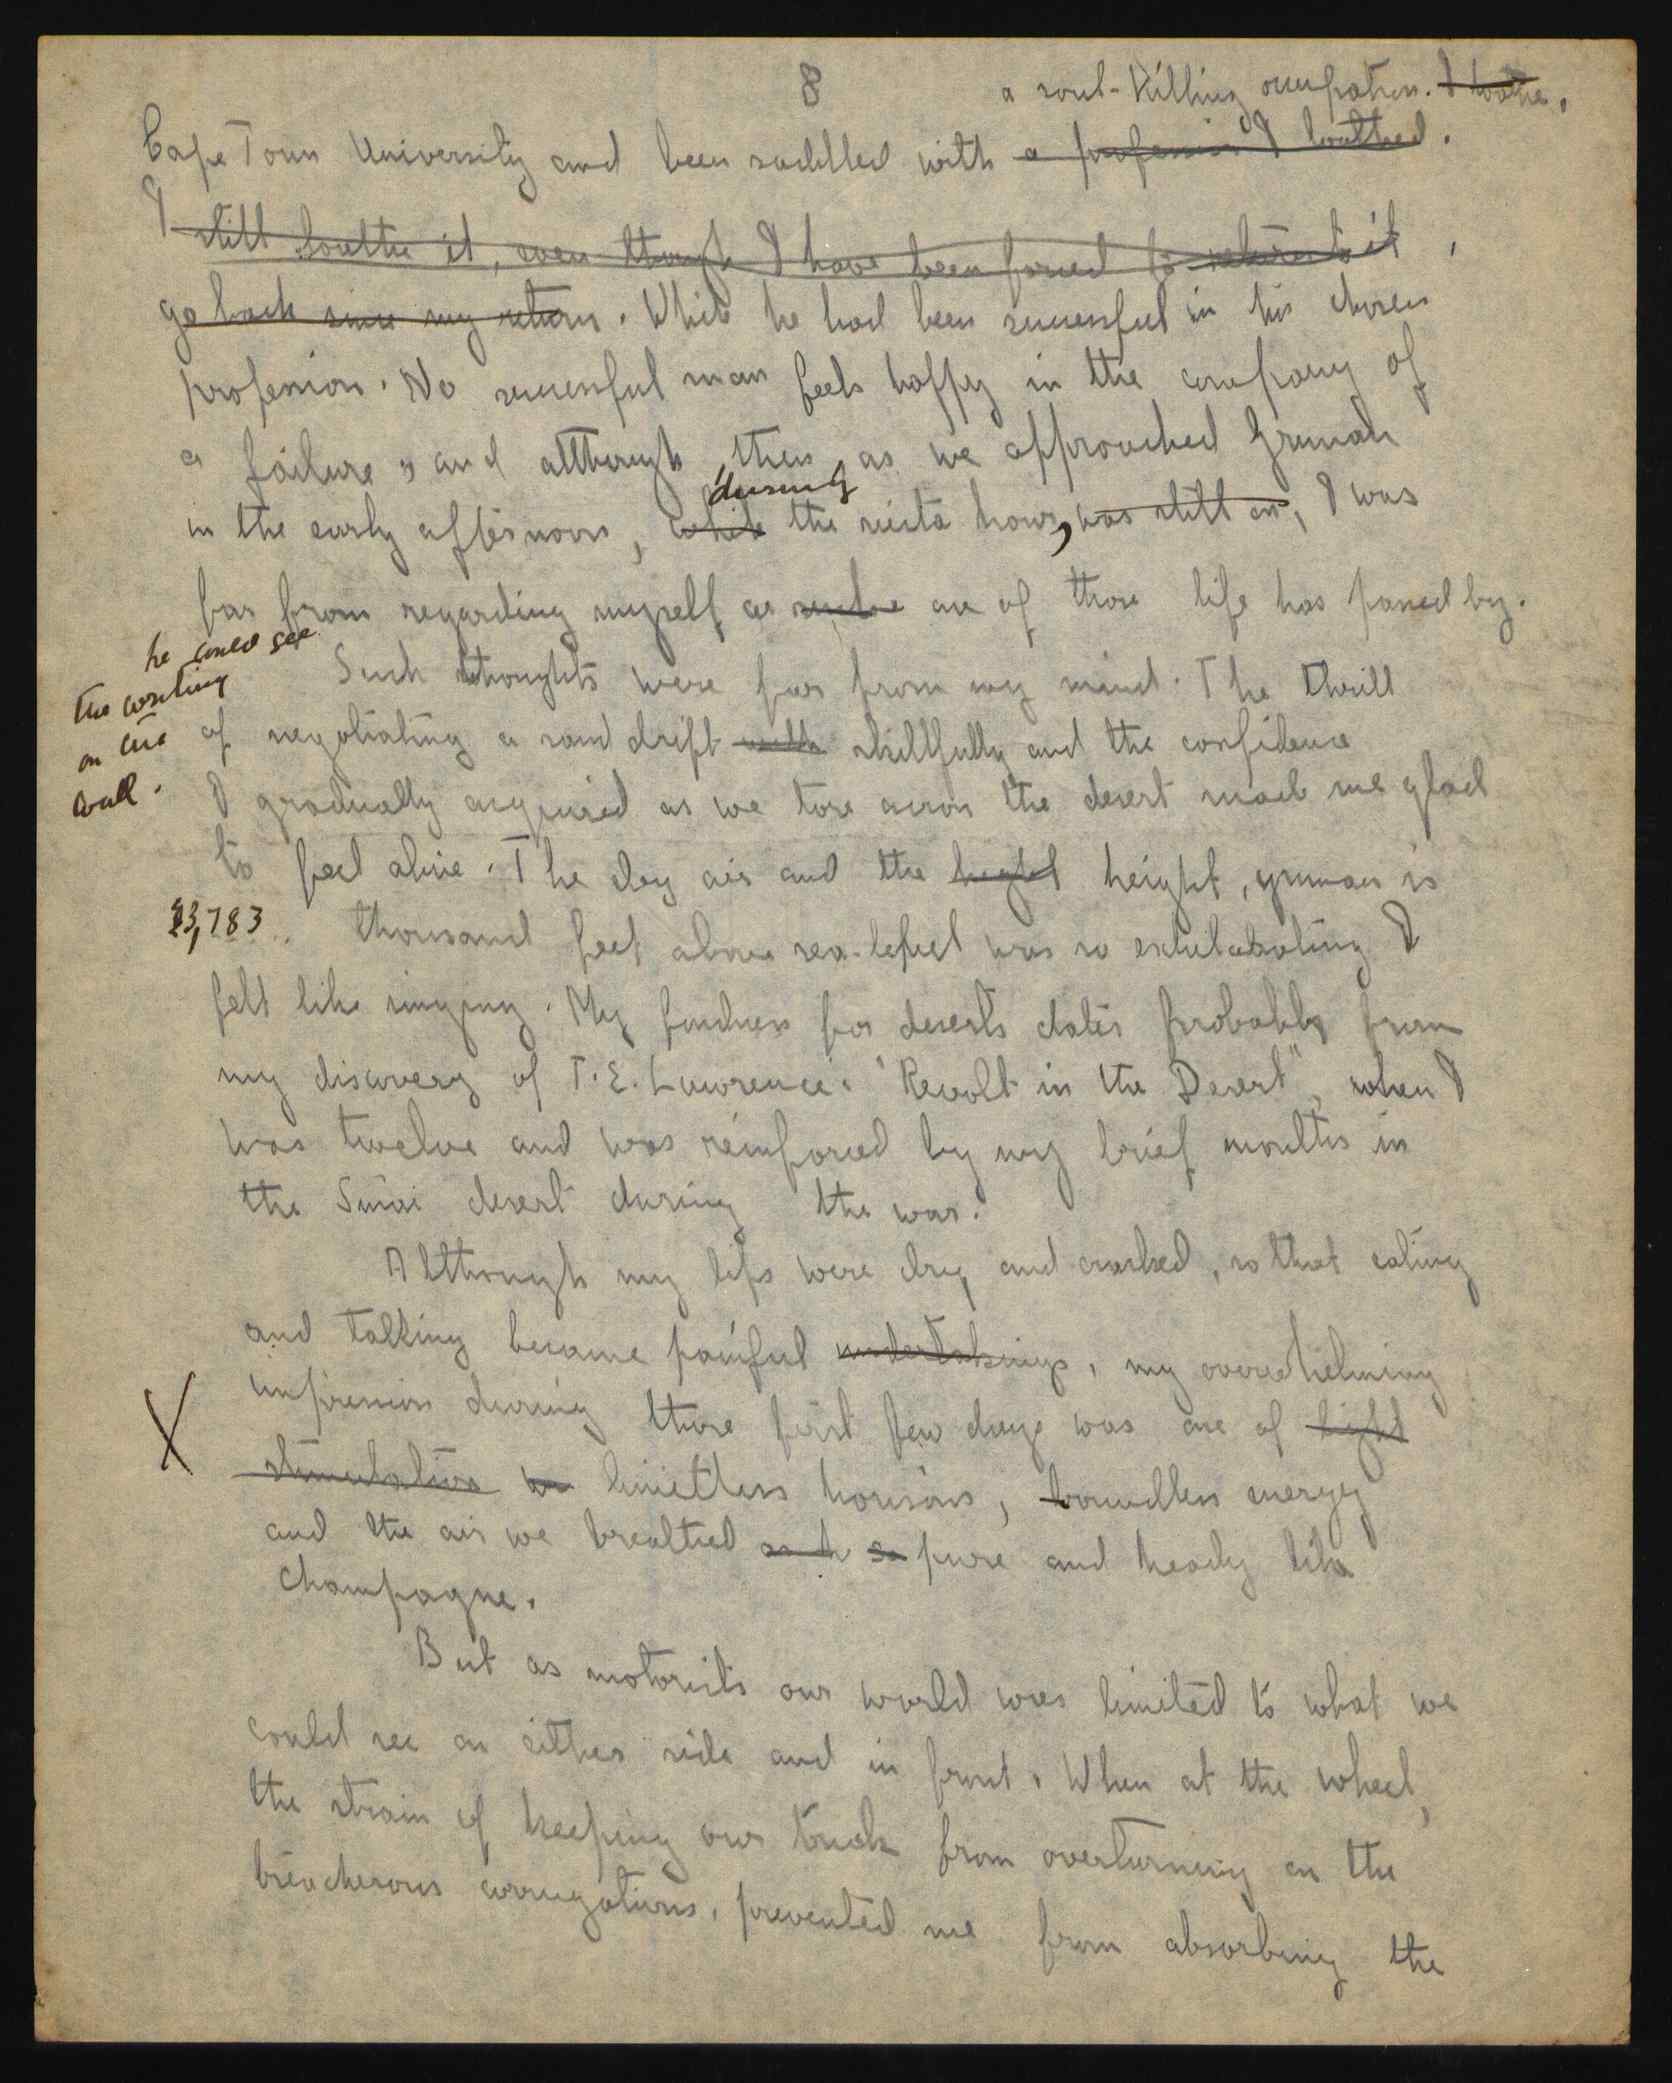 8
a soul-killing occupation. I loathe.
Cape Town University and been saddled with a profession I loathed.
I still loathe it, even though I have been forced to return to it
go back since my return. While he had been successful in his chosen
profession. No successful man feels happy in the company of
a failure, and although then, as we approached Grunau
during
in the early afternoon, while the siesta hour, was still on, I was
far from regarding myself as one of those life has passed by.
he could see
the writing
on the
wall.
Such thoughts were far from my mind. The thrill
of negotiating a sand drift with skillfully and the confidence
I gradually acquired as we tore across the desert made me glad
to feel alive. The dry air and the height height, grunau is
3,783 thousand feet above sea-level was so exhilarating I
felt like singing. My fondness for deserts dates probably from
my discovery of T.E. Lawrence's "Revolt in the Desert", when I
was twelve and was reinforced by my brief months in
the Sinai desert during the war.
Although my lips were dry and cracked, so that eating
and talking became painful undertakings, my overwhelming
impression during those first few days was one of light
X
stimulation limitless horizons, boundless energy
and the air we breathed as so pure and heady like
champagne.
But as motorists our world was limited to what we
could see on either side and in front. When at the wheel,
the strain of keeping our truck from overturning on the
treacherous corrugations, prevented me from absorbing the